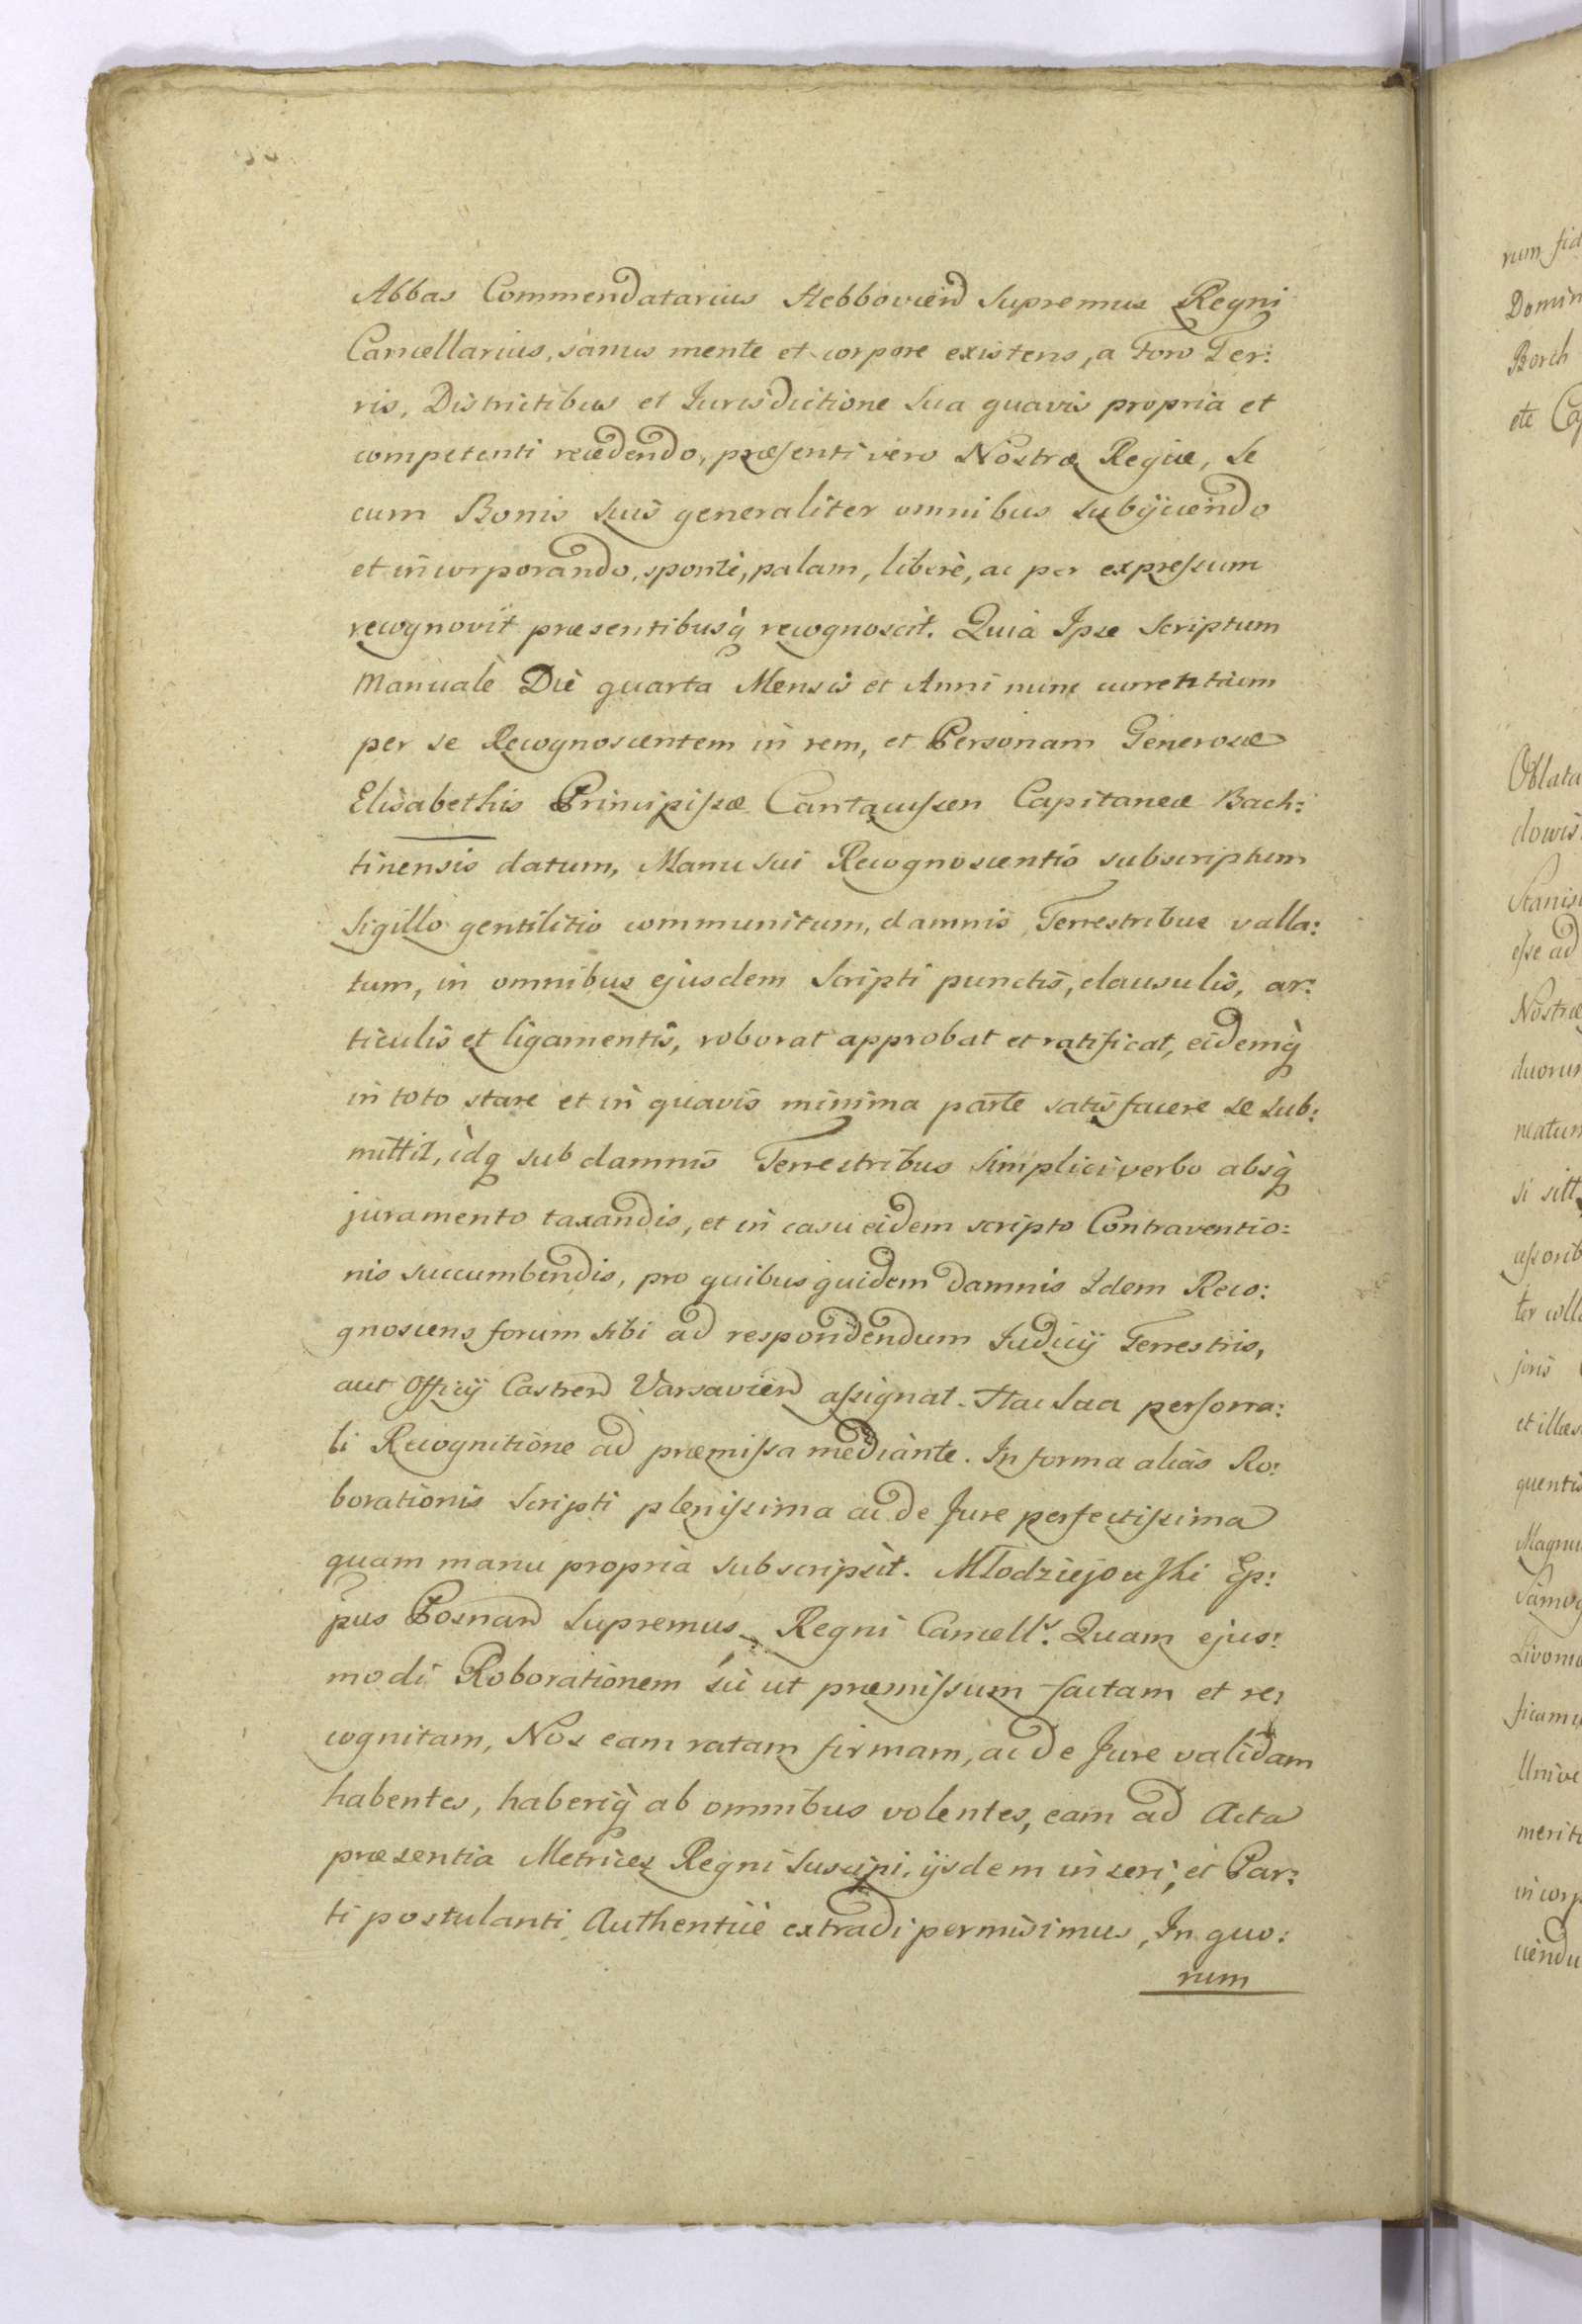 Abbas Commendatarius Hebdoviens Supremus Regni
Cancellarius, sanus mente et corpore existens, a Foro Ter:
ris, Districtibus et Jurisdictione Sua quavis propria et
competenti recedendo, præsenti vero Nostræ Regiæ, se
cum Bonis suis generaliter omnibus subijciendo
et incorporando, sponte, palam, liberè, ac per expressum
recognovit præsentibusq recognoscit. Quia Ipse Scriptum
Manuale Die quarta Mensis et Anni nunc currentium
per se Recognoscentem in rem, et Personam Generosæ
Elisabethis Principissæ Capitaneæ Bach:
tinensis datum, Manu sui Recognoscentis subscriptum
Sigillo gentilitio communitum, damnis Terrestribus valla:
tum, in omnibus ejusdem Scripti punctis, clausulis, ar:
ticulis et ligamentis, roborat approbat et ratificat, eidemq
in toto stare et in quavis minima parte satisfacere se sub:
mittit, idq sub damnis Terrestribus simplici verbo absq
juramento taxandis, et in casu eidem scripto Contraventio:
nis succumbendis, pro quibus quidem damnis Idem Reco:
gnoscens forum sibi ad respondendum Judicij Terrestris,
aut Officij Castren Varsavien assignat. Hac Sua persona:
li Recognitione ad præmissa mediante. In forma alias Ro:
borationis Scripti plenissima ac de Jure perfectissima
quam manu propria subscripsit. Młodziejowski Ep:
pus Posnan Supremus Regni Cancell.s Quam ejus:
modi Roborationem sic ut præmissum factam et re:
cognitam, Nos eam ratam firmam, ac de Jure validam
habentes, haberiq ab omnibus volentes, eam ad Acta
præsentia Metrices Regni suscipi, ijsdem inseri, et Par:
ti postulanti Authenticè extradi permisimus, In quo:
rum
Domin
Borch
Oblata
Stanis
esse ad
duorum
si sit
quentis
meriti